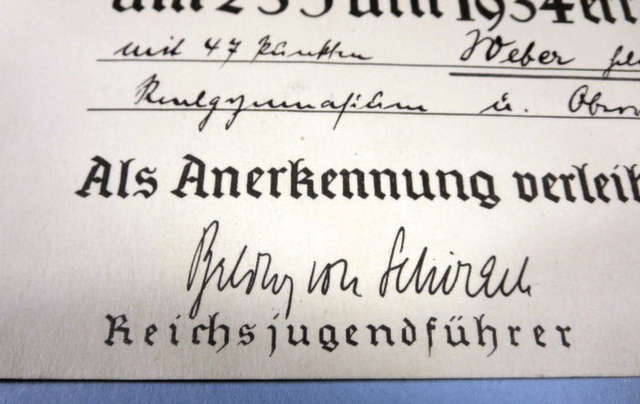 am 23. Juni 1934 err
mit 47 Punkten Weber
Realgymnasium u. Ober
Als Anerkennung verleih
Baldur von Schirach
Reichsjugendführer